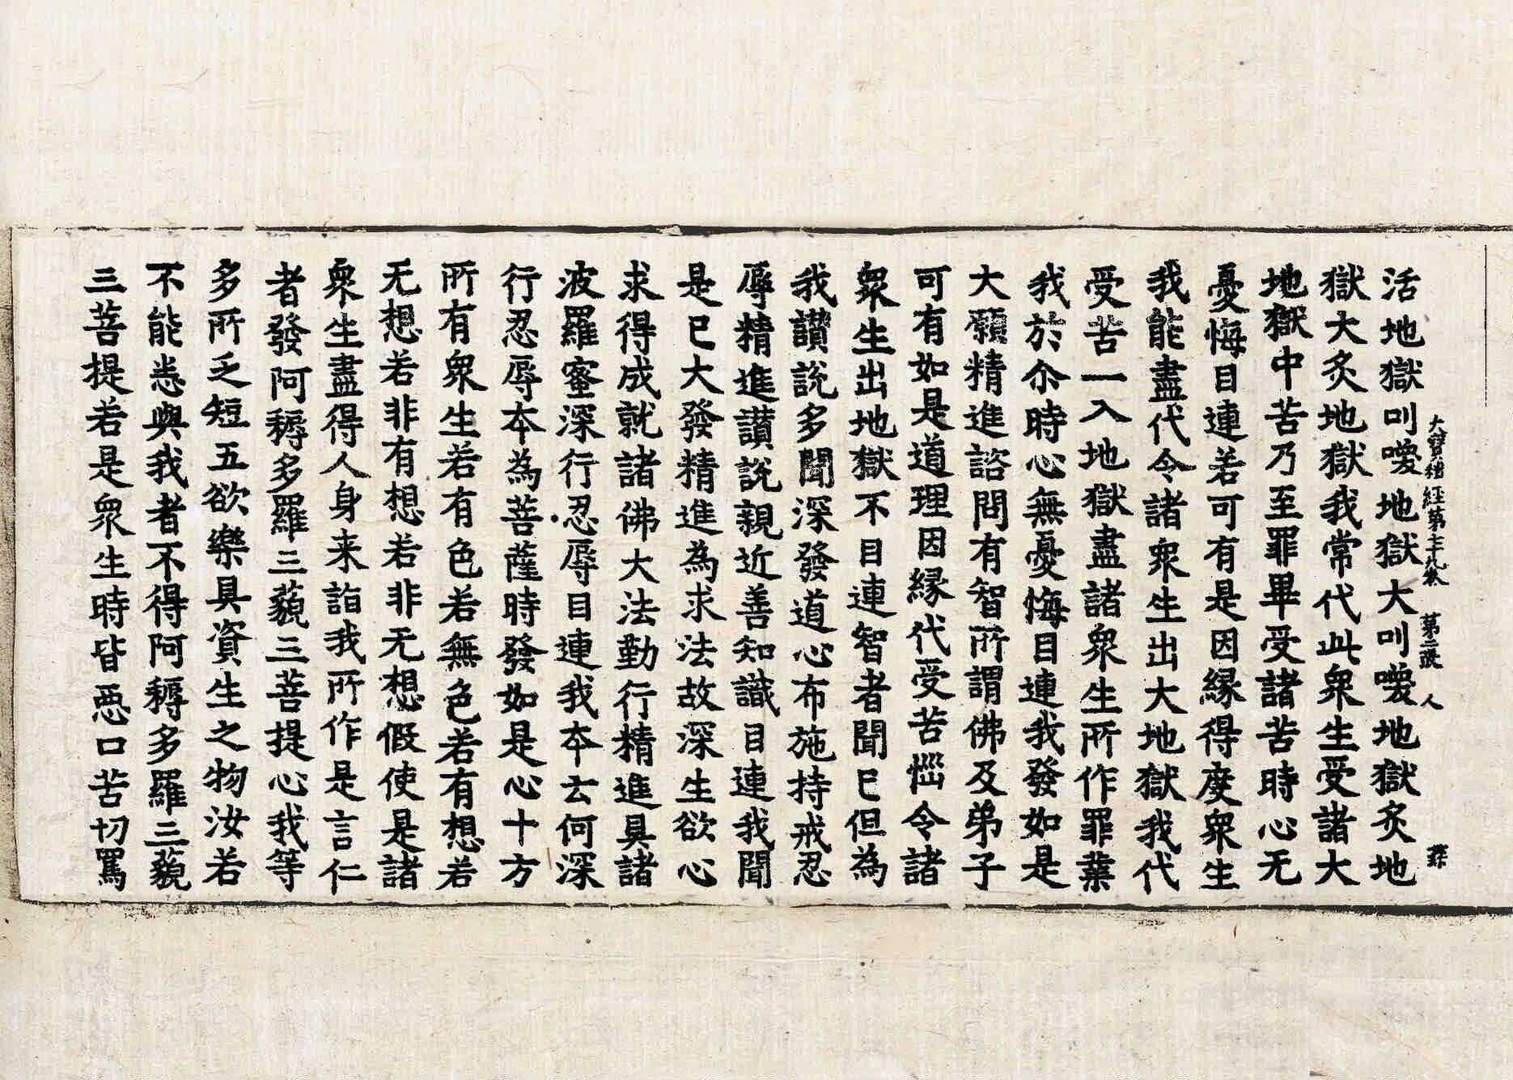 大寶積經第七十九卷　第二張　人
活地獄叫喚地獄大叫喚地獄炙地
獄大炙地獄我常代此衆生受諸大
地獄中苦乃至罪畢受諸苦時心无
憂悔目連若可有是因緣得度衆生
我能盡代令諸衆生出大地獄我代
受苦一入地獄盡諸衆生所作罪業
我於尒時心無憂悔目連我發如是
大願精進諮問有智所謂佛及弟子
可有如是道理因緣代受苦惱令諸
衆生出地獄不目連智者聞已但為
我讃說多聞深發道心布施持戒忍
辱精進讃說親近善知識目連我聞
是已大發精進為求法故深生欲心
求得成就諸佛大法勤行精進具諸
波羅蜜深行忍辱目連我夲云何深
行忍辱夲為菩薩時發如是心十方
所有衆生若有色若無色若有想若
无想若非有想若非无想假使是諸
衆生盡得人身来詣我所作是言仁
者發阿耨多羅三藐三菩提心我等
多所乏短五欲樂具資生之物汝若
不能悉與我者不得阿耨多羅三藐
三菩提若是衆生時皆惡口苦切罵